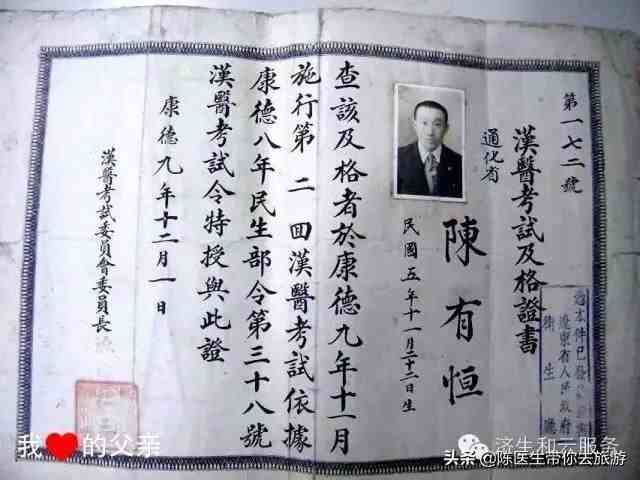 第一七二號
漢醫考試及格證書
通化省
陳有恒
民國五年十一月二十二日生
查該及格者於康德九年十一月
施行第二回漢醫考試依據
康德八年民生部令第三十八號
漢醫考試令特授與此證
康德九年十二月一日
漢醫考試委員會委員長
遼東省人民政府
衛生
我❤的父亲
济生和云服务
头条@陈医生带你去旅游